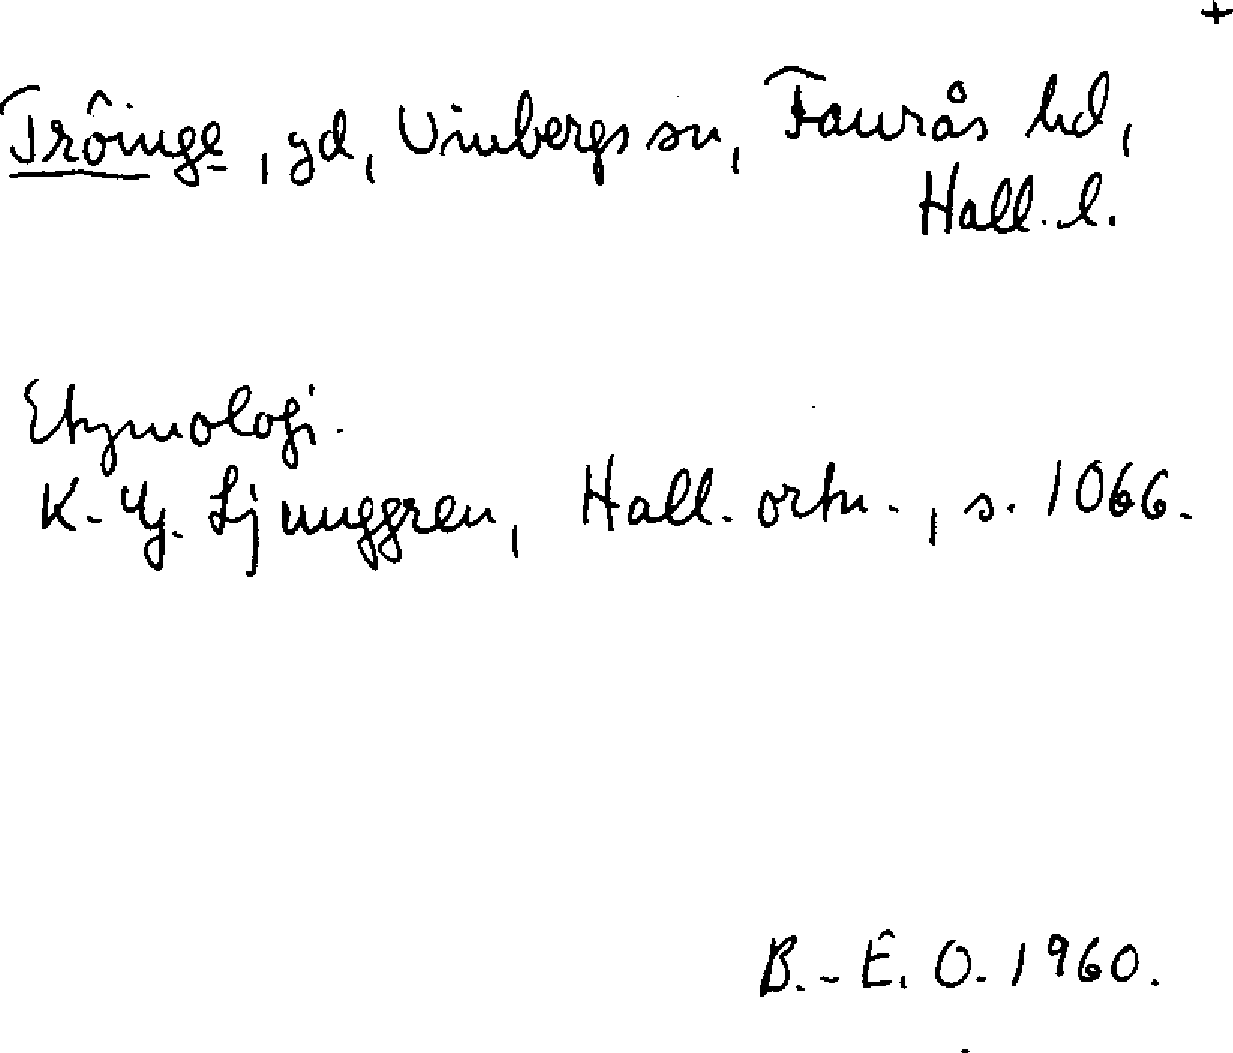 +
Tröinge, gd, Vinbergs sn, Faurås hd,
Hall. l.
Etymologi.
K. G. Ljunggren, Hall. ortn., s. 1066.
B.-E. O. 1960.